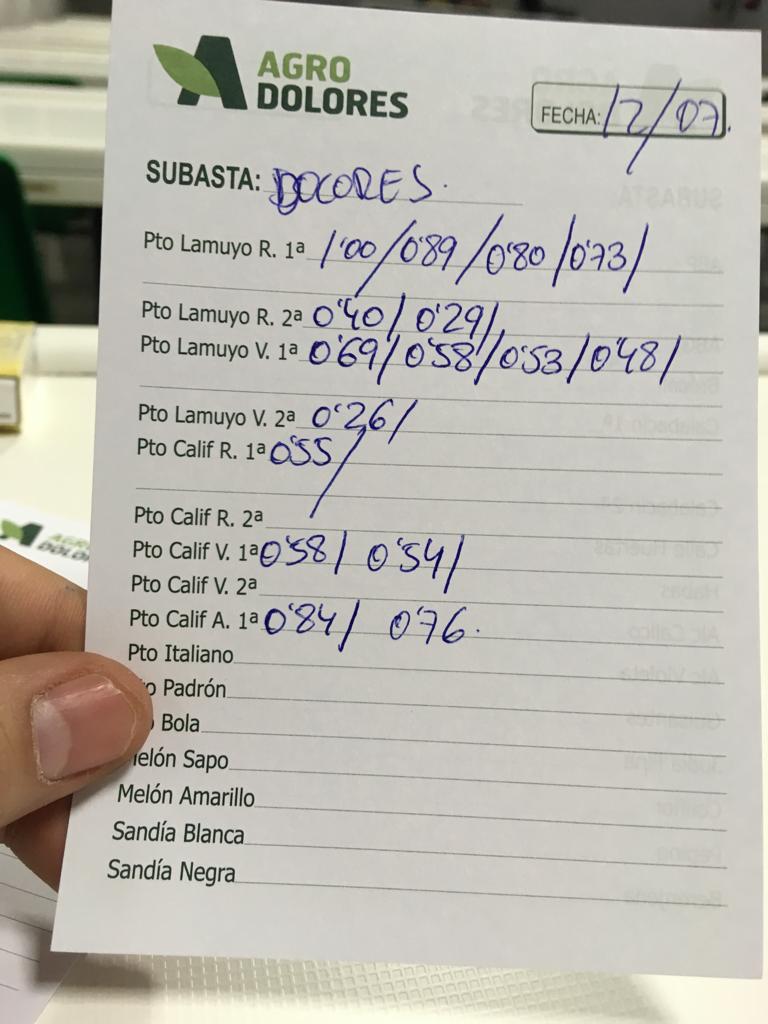 AGRO
DOLORES
FECHA: 12/07.
SUBASTA: DOLORES.
Pto Lamuyo R. 1ª 1'00/0'89/0'80/0'73/
Pto Lamuyo R. 2ª 0'40/ 0'29/
Pto Lamuyo V. 1ª 0'69/0'58/0'53/0'48/
Pto Lamuyo V. 2ª 0'26/
Pto Calif R. 1ª 0'55/
Pto Calif R. 2ª
Pto Calif V. 1ª 0'58/ 0'54/
Pto Calif V. 2ª
Pto Calif A. 1ª 0'84/ 0'76.
Pto Italiano
Padrón
Bola
elón Sapo
Melón Amarillo
Sandía Blanca
Sandía Negra
AGRO